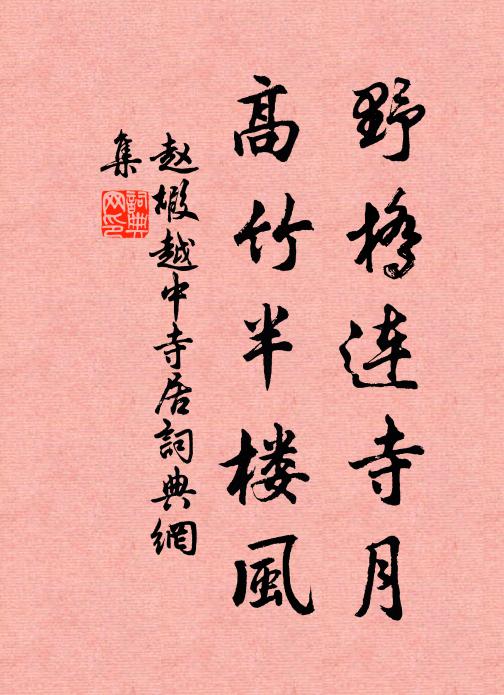 野橋連寺月
高竹半楼風
赵嘏越中寺居詞典網
集
詞典網印